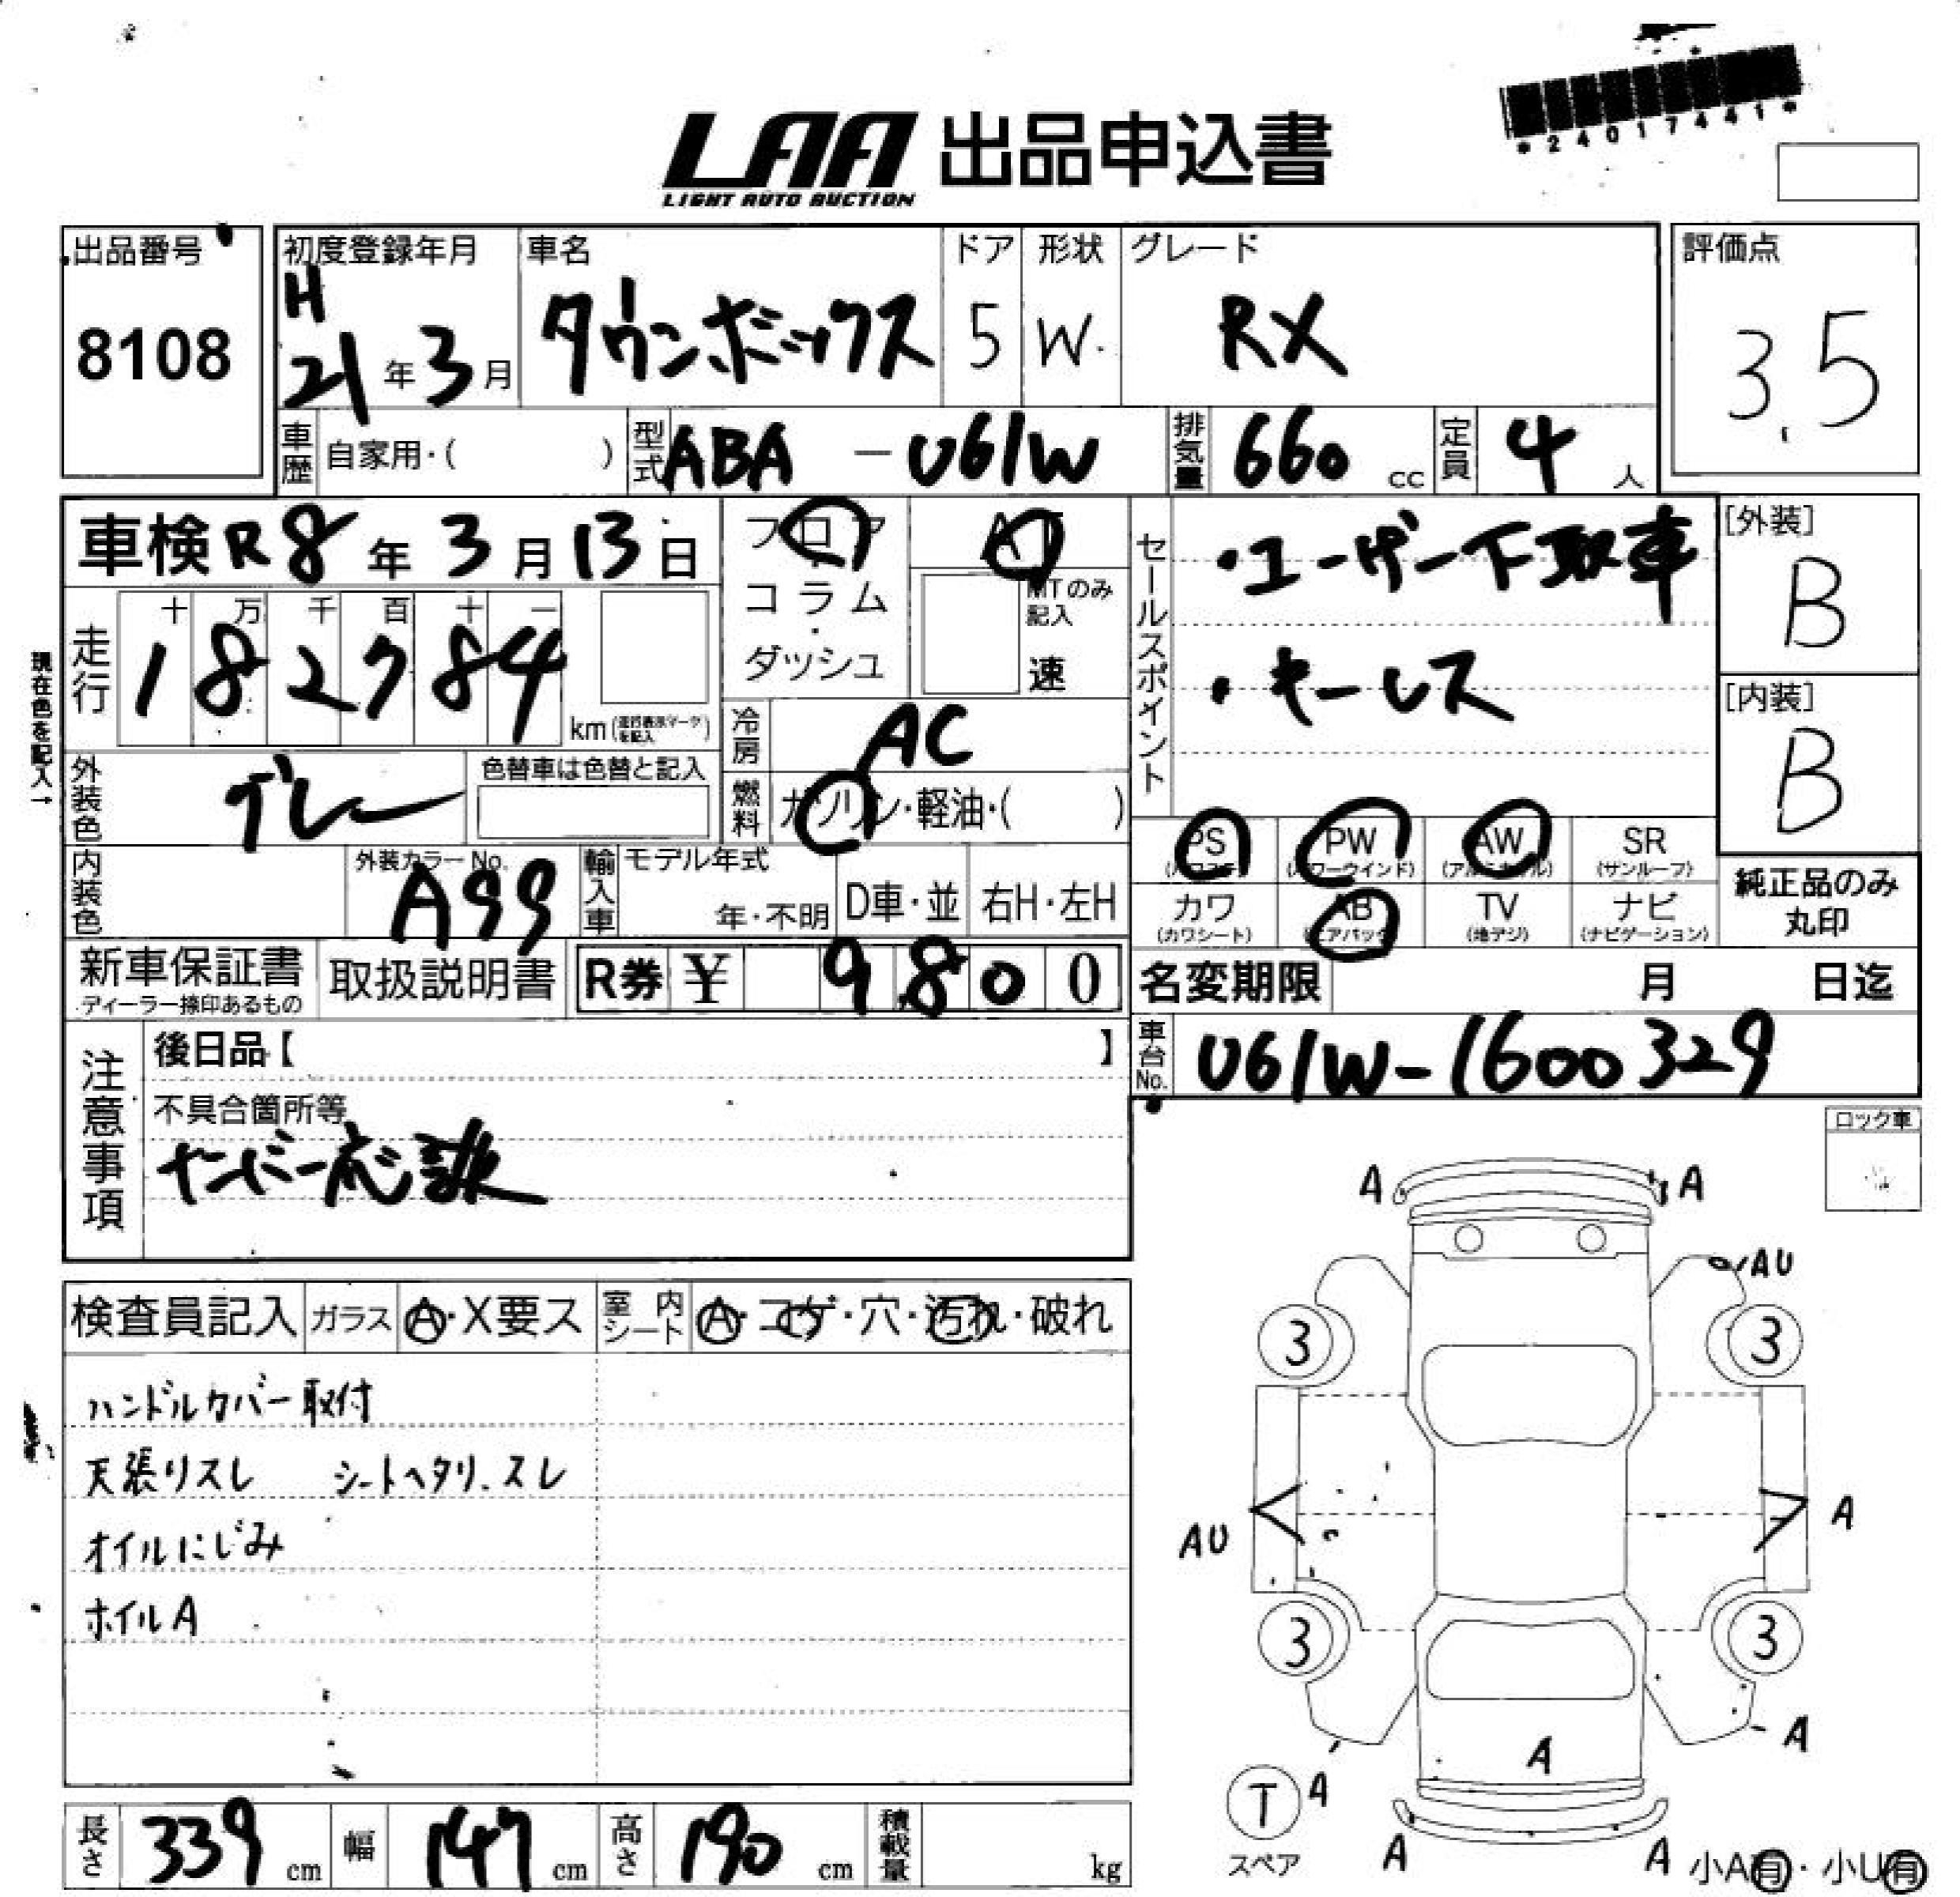 *24017441*
LAA 出品申込書
LIGHT AUTO AUCTION
出品番号
8108
初度登録年月
H
21年3月
車名
タウンボックス
ドア
5
形状
W.
グレード
RX
評価点
3.5
車歴 自家用・( )
型式 ABA - U61W
排気量 660 cc
定員 4 人
車検 R8年3月13日
フロア
コラム
・
ダッシュ
AT
MTのみ
記入
速
セールスポイント
・ユーザー下取車
・キーレス
[外装]
B
[内装]
B
現在色を記入→
走行
十 万 千 百 十 一
1 8 2 7 8 4
km(走行表示マークを記入)
冷房 AC
燃料 ガソリン・軽油・( )
外装色 グレー
色替車は色替と記入
PS
PW
(パワーウインド)
AW
SR
(サンルーフ)
カワ
(カワシート)
AB
(エアバッグ)
TV
(地デジ)
ナビ
(ナビゲーション)
純正品のみ
丸印
内装色
外装カラーNo.
A99
輸入車
モデル年式
年・不明
D車・並
右H・左H
新車保証書
ディーラー捺印あるもの
取扱説明書
R券 ¥ 9800
名変期限 月 日迄
車台No. U61W-1600329
注意事項
後日品【 】
不具合箇所等
ナンバー応談
ロック車
検査員記入
ガラス A・X要ス
室内シート A・コゲ・穴・汚れ・破れ
ハンドルカバー取付
天張りスレ シートヘタリ、スレ
オイルにじみ
ホイルA
A A
AU
3 3
AU A
3 3
A
A
A
T
スペア
A A
小A有・小U有
長さ 339 cm
幅 147 cm
高さ 190 cm
積載量 kg